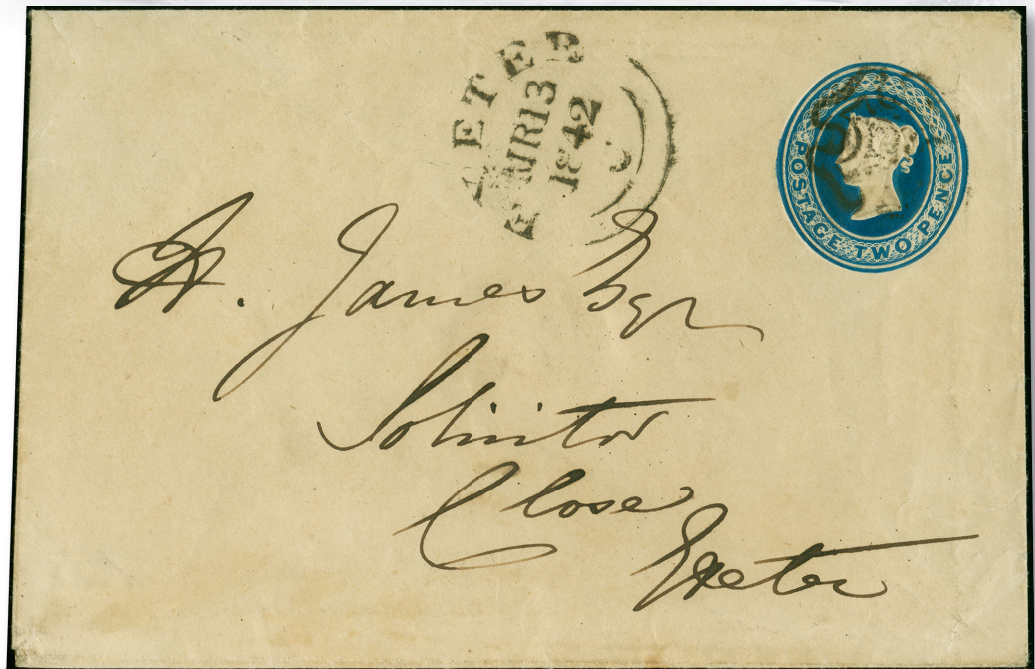 EXETER
MR13
1842
POSTAGE TWO PENCE
H. James Esqr
Solicitor
Close
Exeter